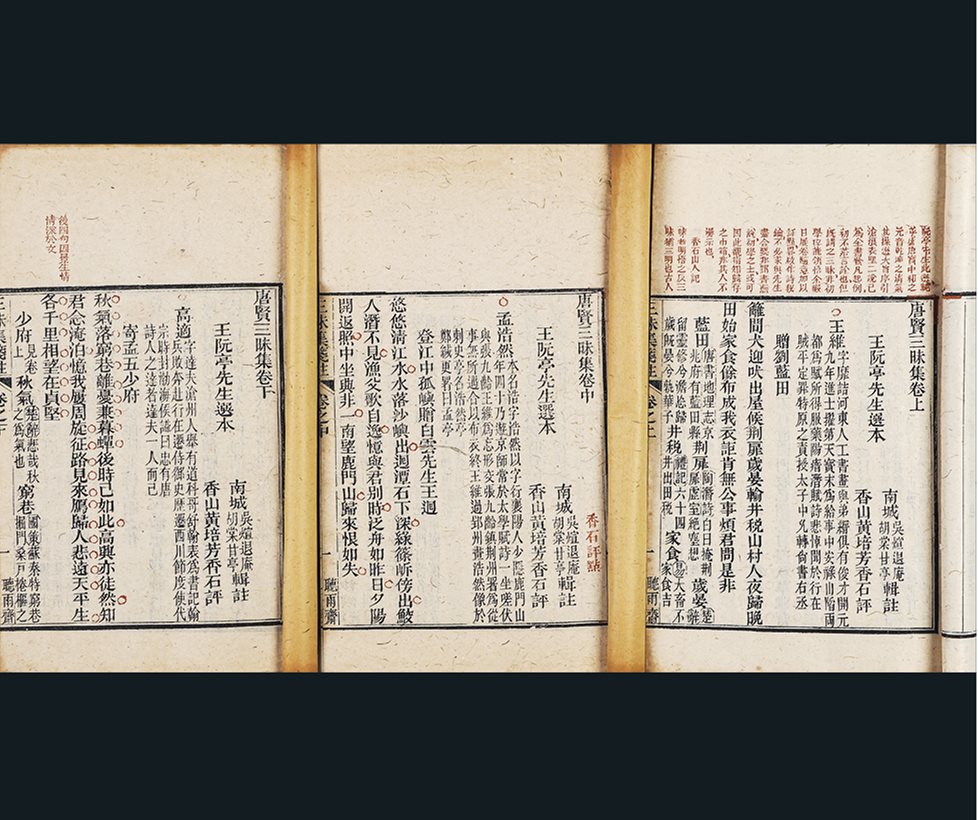 唐賢三昧集卷上
王阮亭先生選本
南城
吳煊退庵
胡棠甘亭
輯註
香山黃培芳香石評
王維
字摩詰河東人工書畫與弟縉俱有俊才開元
九年進士擢第天寶末為給事中安祿山陷兩
都為賊所得服藥陽瘖潛賦詩悲悼聞於行在
賊平定罪特原之責授太子中允轉尚書右丞
贈劉藍田
籬間犬迎吠出屋候荆扉歲晏輸井稅山村人夜歸晚
田始家食餘布成我衣詎肯無公事煩君問是非
藍田
唐書地理志京
兆府有藍田縣
荆扉
陶潛詩白日掩荆
扉虛室絕塵想
歲晏
楚辭
留靈修兮澹忘歸
歲既晏兮孰華予
井稅
禮記六十四
井出田稅
家食
易大畜不
家食吉
一
聽雨齋
香石山人記
唐賢三昧集卷中
王阮亭先生選本
南城
吳煊退庵
胡棠甘亭
輯註
香山黃培芳香石評
香石評點
孟浩然
本名浩字浩然以字行襄陽人少隱鹿門山
年四十乃遊京師常於太學賦詩一坐嗟伏
與張九齡王維為忘形交張九齡鎮荆州署為從
事無所遇合以布衣終王維過郢州畫浩然像於
刺史亭名浩然亭
鄭諴更署曰孟亭
登江中孤嶼贈白雲先生王迥
悠悠清江水水落沙嶼出迴潭石下深綠篠岸傍出鮫
人潛不見漁父歌自逸憶與君別時泛舟如昨日夕陽
開返照中坐興非一南望鹿門山歸來恨如失
三昧集箋註
卷之中
一
聽雨齋
唐賢三昧集卷下
王阮亭先生選本
南城
吳煊退庵
胡棠甘亭
輯註
香山黃培芳香石評
高適
字達夫滄州人舉有道科哥舒翰表為書記翰
兵敗奔赴行在遷侍御史歷遷西川節度使代
宗時封渤海侯諡曰忠有唐
詩人之達者達夫一人而已
寄孟五少府
秋氣落窮巷離憂兼暮蟬後時已如此高興亦徒然知
君念淹泊憶我屢周旋征路見來雁歸人悲遠天平生
各千里相望在貞堅
少府
見卷
上
秋氣
楚辭悲哉秋
之為氣也
窮巷
國策蘇秦特窮巷
掘門桑戶棬樞之
一
聽雨齋
後四句因景生情
情深於文